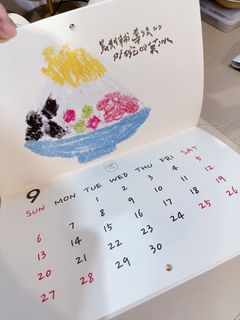 暑期輔導
碗四菓冰
9
SUN MON TUE WED THU FRI SAT
1 2 3 4 5
6 7 8 9 10 11 12
13 14 15 16 17 18 19
20 21 22 23 24 25 26
27 28 29 30